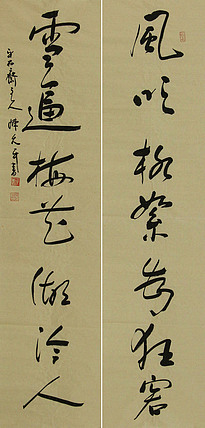 風吹柳絮為狂客
雪逼梅花做冷人
齋主人